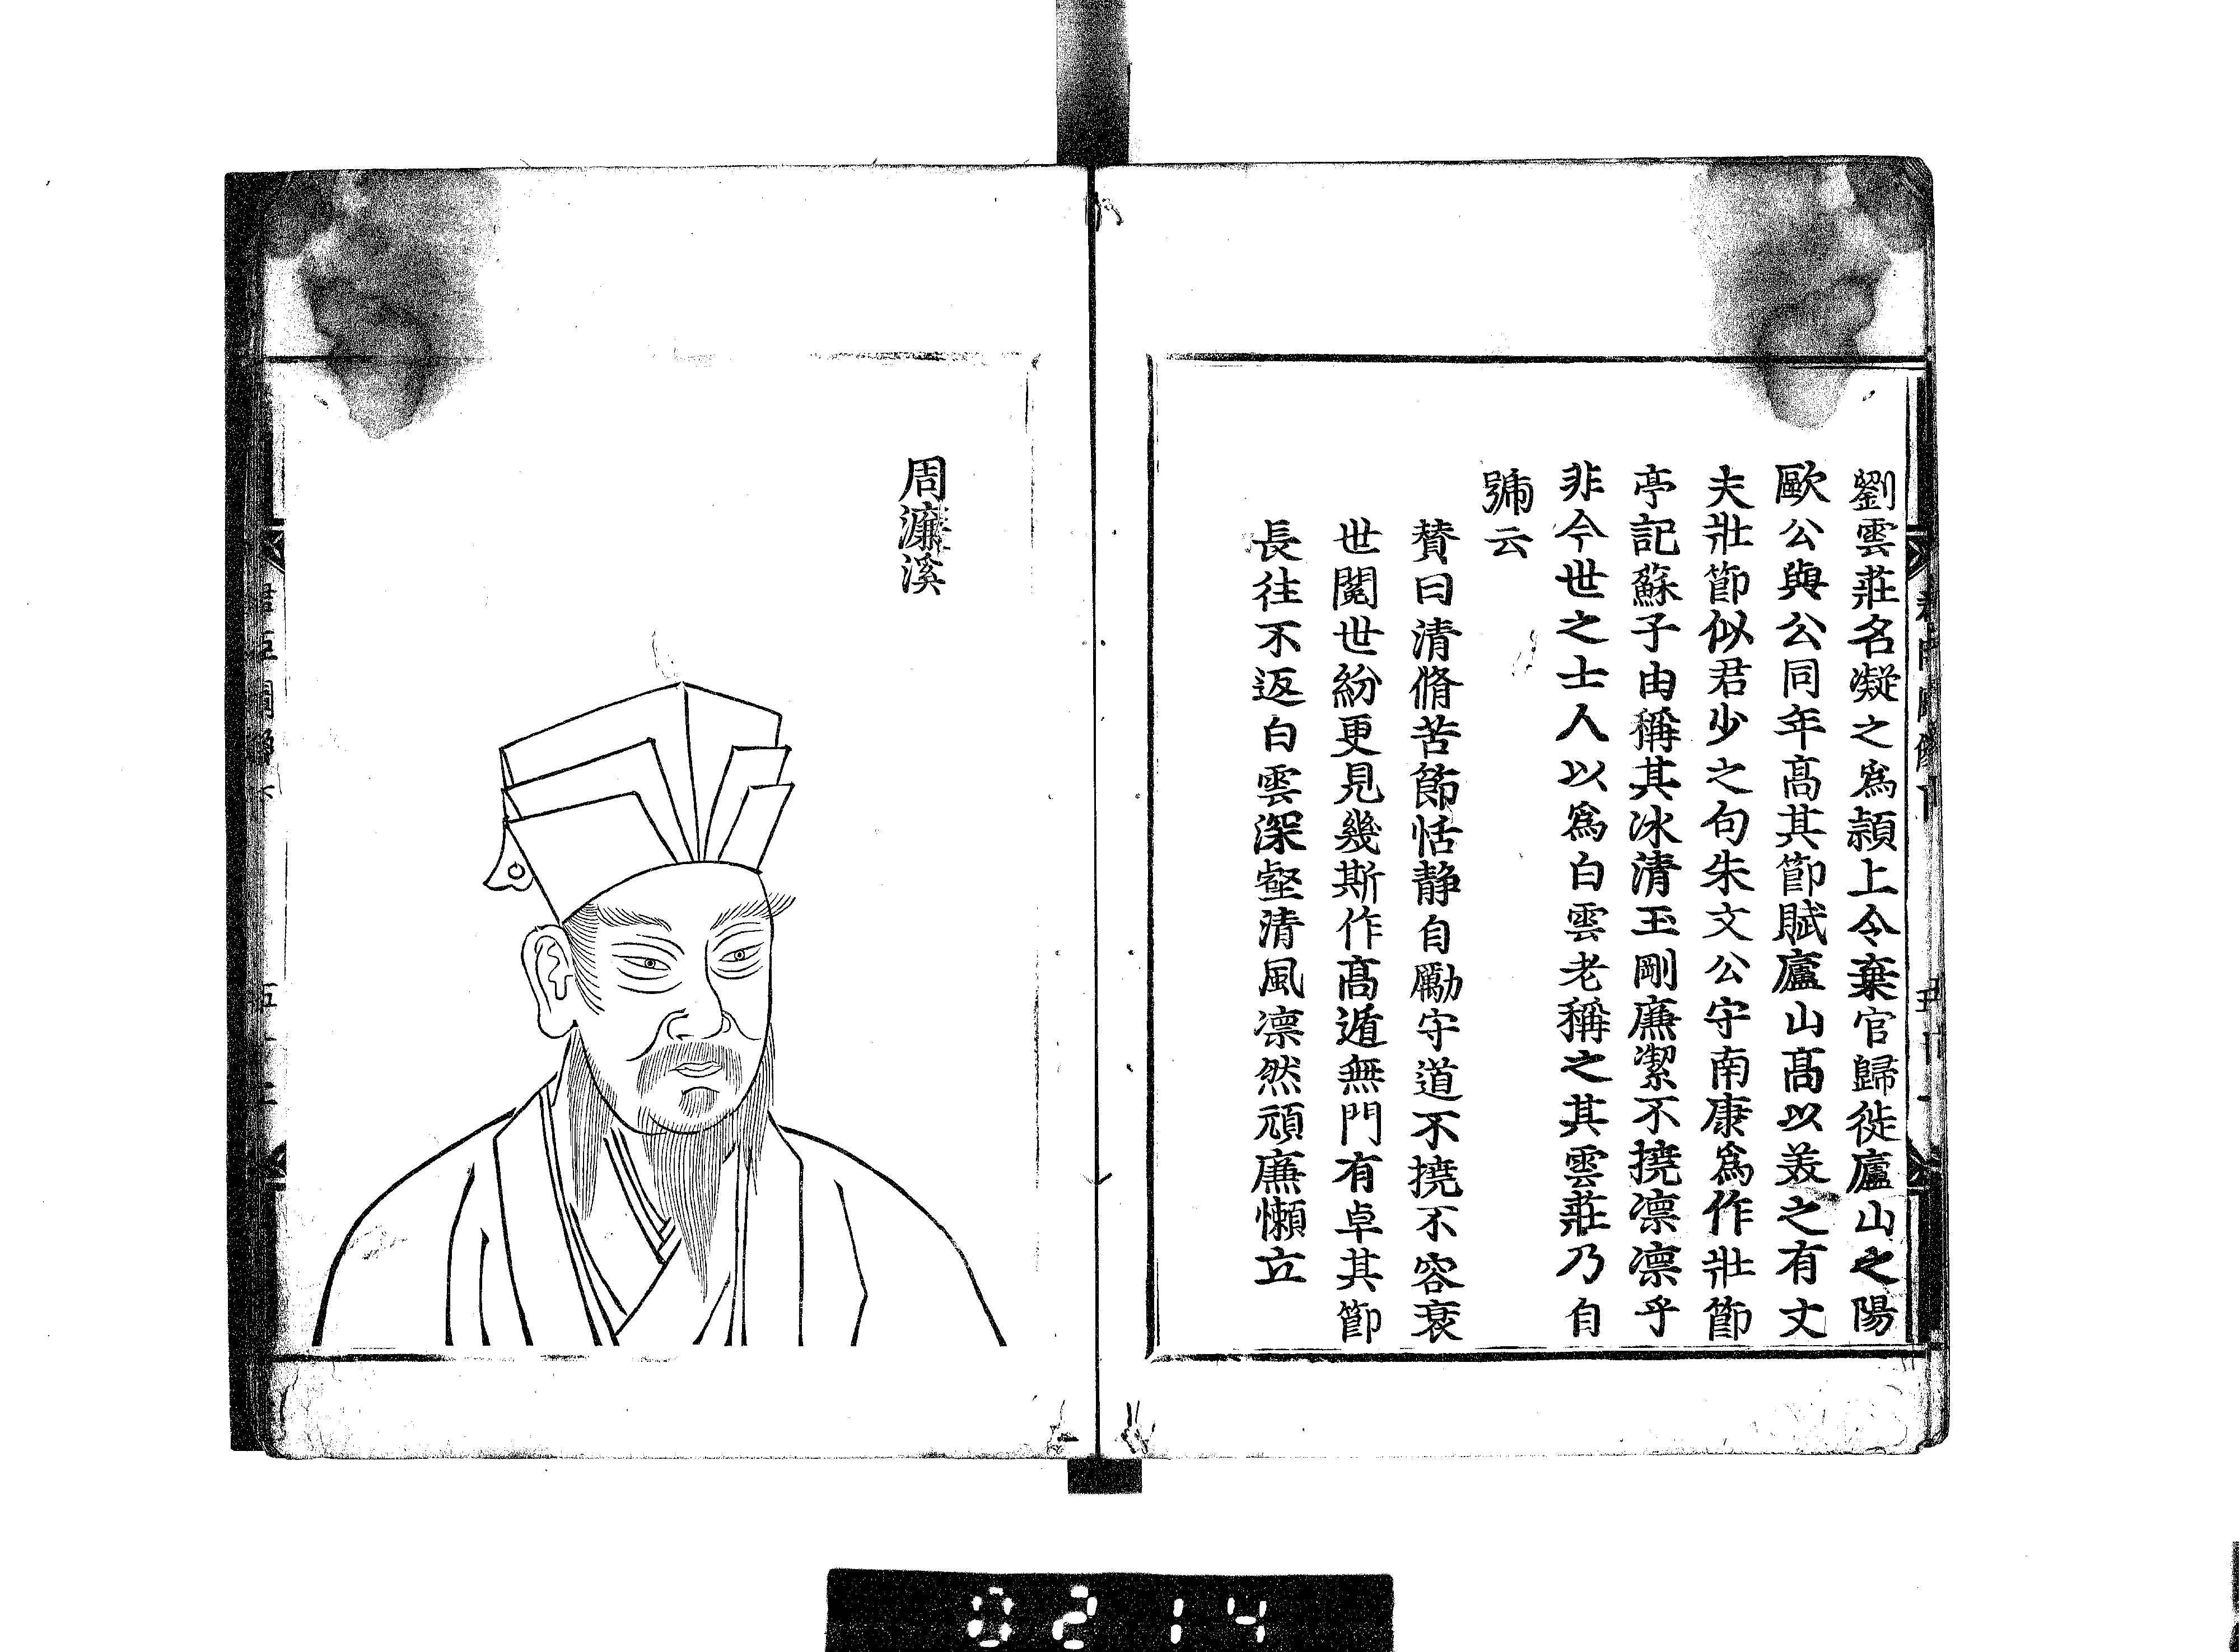 劉雲莊名凝之爲頴上令棄官歸徙廬山之陽
歐公與公同年髙其節賦廬山髙以美之有丈
夫壯節似君少之句朱文公守南康爲作壯節
亭記蘇子由稱其冰清玉剛廉潔不撓凛凛乎
非今世之士人以爲白雲老稱之其雲莊乃自
號云
賛曰清脩苦節恬静自勵守道不撓不容衰
世閲世紛更見幾斯作髙遁無門有卓其節
長往不返白雲深壑清風凛然頑廉懶立
周濂溪
0214